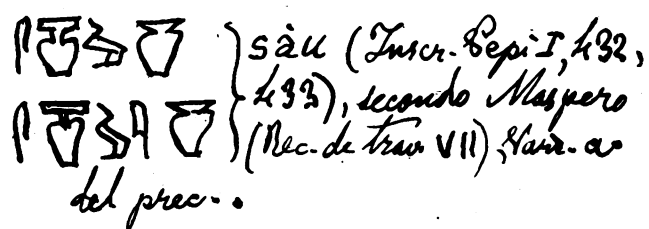 sàu (Inscr. Pepi I, 432,
433), secondo Maspero
(Rec. de trav. VII), Var.a
del prec.